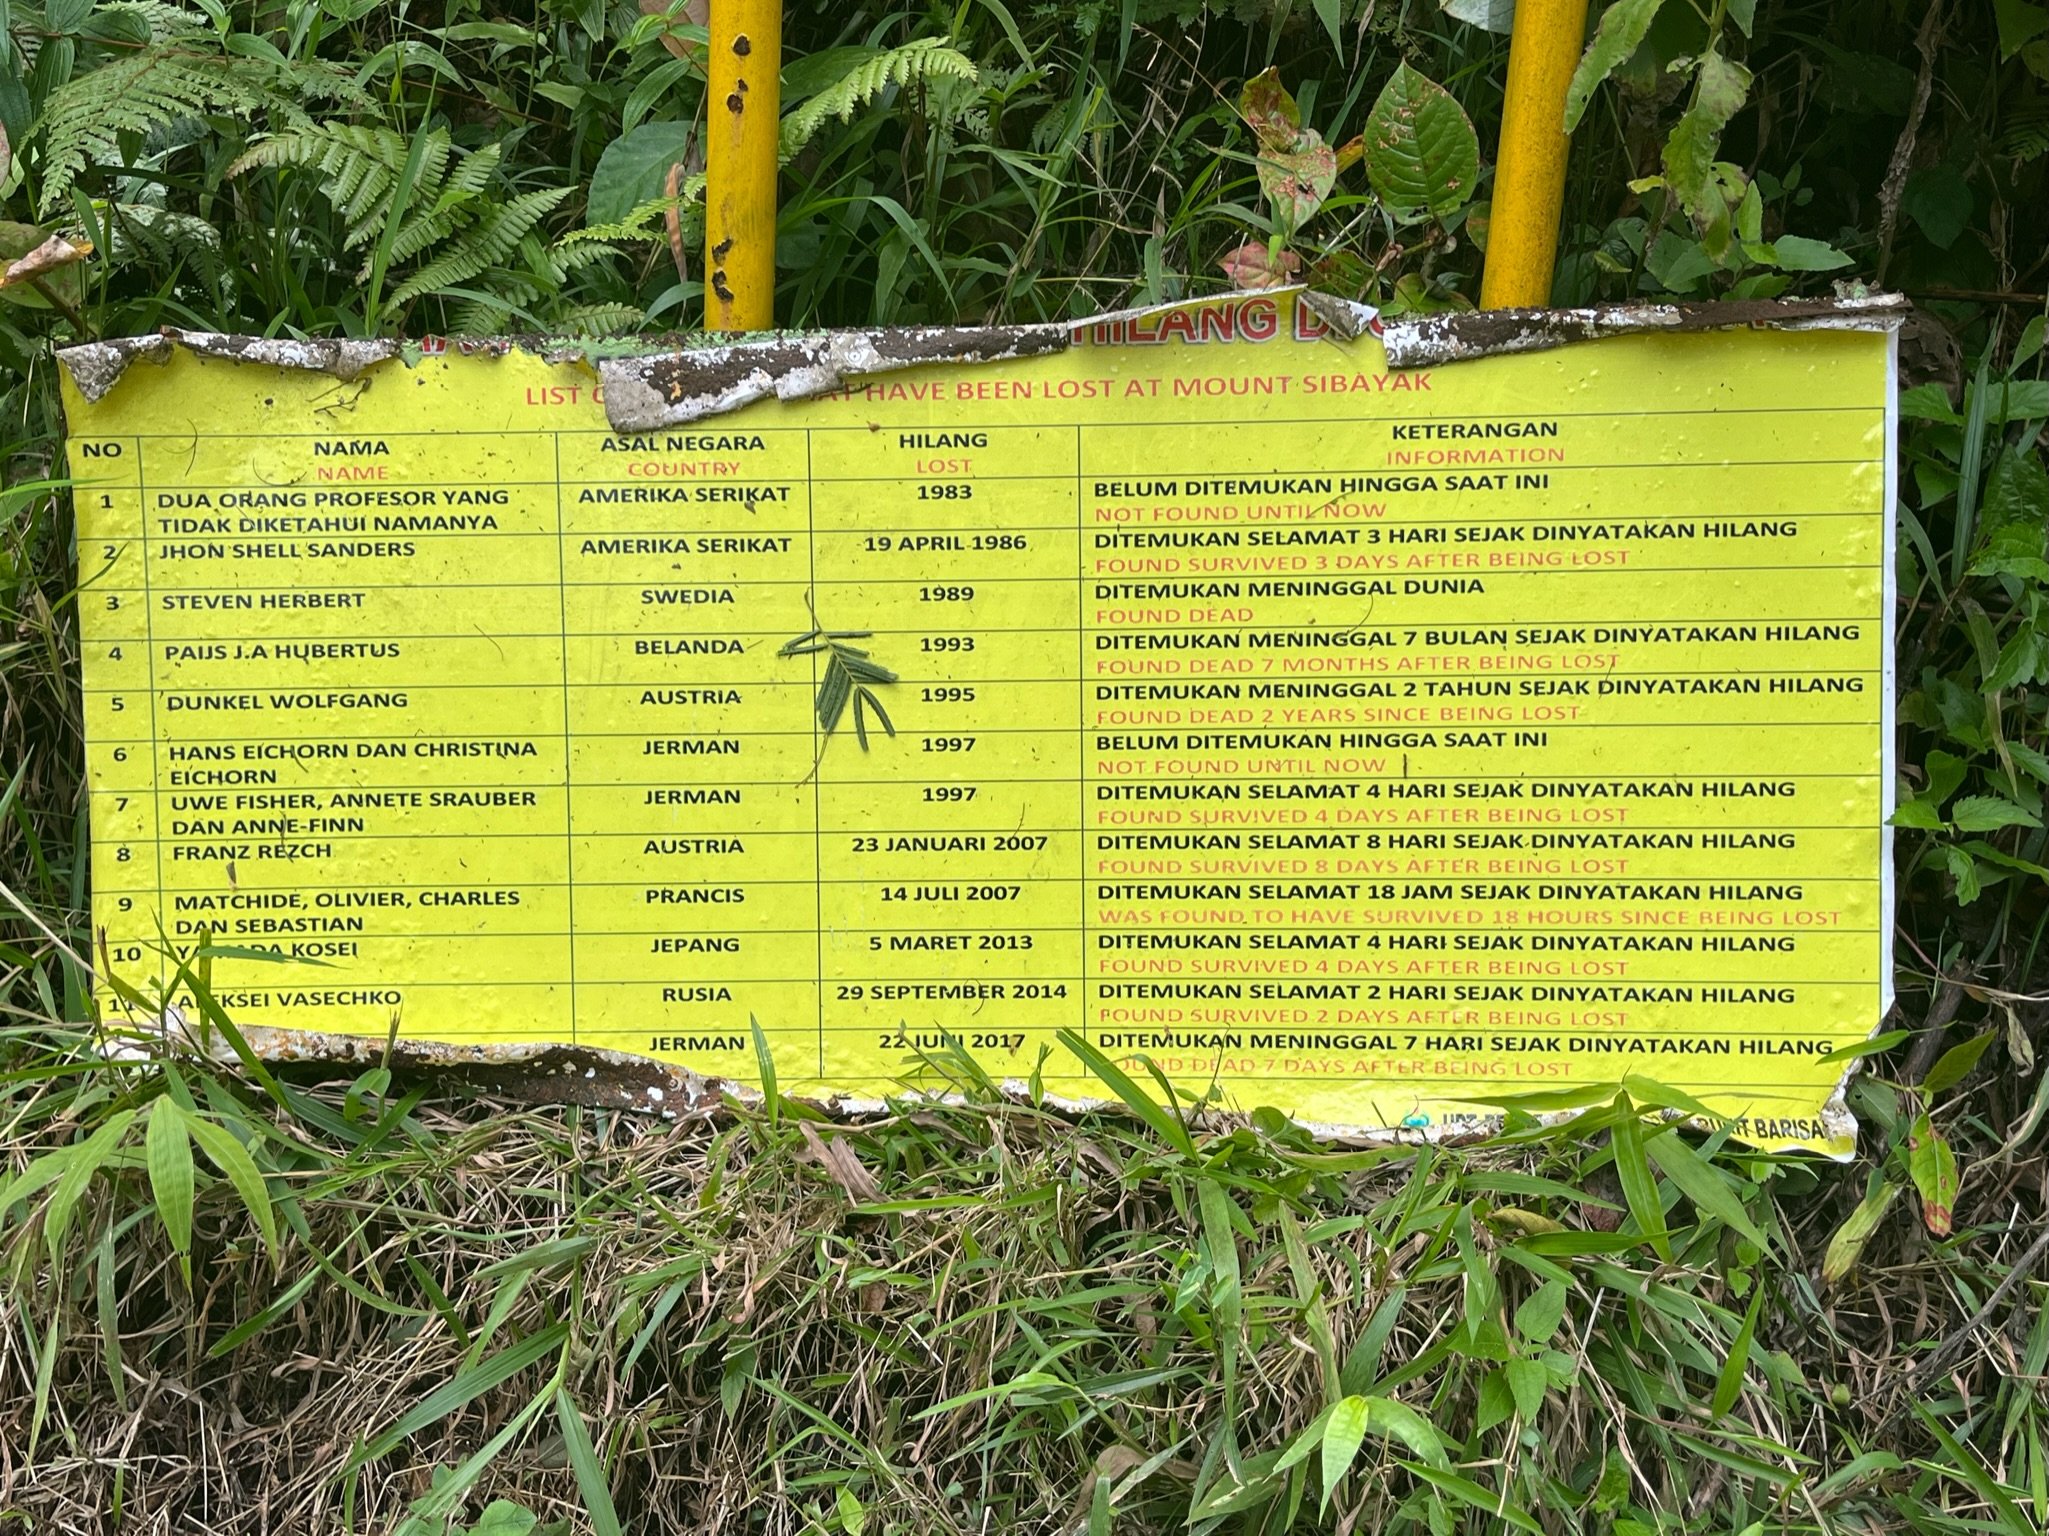 HILANG
LIST HAVE BEEN LOST AT MOUNT SIBAYAK
NO NAMA ASAL NEGARA HILANG KETERANGAN
NAME COUNTRY LOST INFORMATION
1 DUA ORANG PROFESOR YANG AMERIKA SERIKAT 1983 BELUM DITEMUKAN HINGGA SAAT INI
TIDAK DIKETAHUI NAMANYA NOT FOUND UNTIL NOW
2 JHON SHELL SANDERS AMERIKA SERIKAT 19 APRIL 1986 DITEMUKAN SELAMAT 3 HARI SEJAK DINYATAKAN HILANG
FOUND SURVIVED 3 DAYS AFTER BEING LOST
3 STEVEN HERBERT SWEDIA 1989 DITEMUKAN MENINGGAL DUNIA
FOUND DEAD
4 PAIJS J.A HUBERTUS BELANDA 1993 DITEMUKAN MENINGGAL 7 BULAN SEJAK DINYATAKAN HILANG
FOUND DEAD 7 MONTHS AFTER BEING LOST
5 DUNKEL WOLFGANG AUSTRIA 1995 DITEMUKAN MENINGGAL 2 TAHUN SEJAK DINYATAKAN HILANG
FOUND DEAD 2 YEARS SINCE BEING LOST
6 HANS EICHORN DAN CHRISTINA JERMAN 1997 BELUM DITEMUKAN HINGGA SAAT INI
EICHORN NOT FOUND UNTIL NOW
7 UWE FISHER, ANNETE SRAUBER JERMAN 1997 DITEMUKAN SELAMAT 4 HARI SEJAK DINYATAKAN HILANG
DAN ANNE-FINN FOUND SURVIVED 4 DAYS AFTER BEING LOST
8 FRANZ REZCH AUSTRIA 23 JANUARI 2007 DITEMUKAN SELAMAT 8 HARI SEJAK DINYATAKAN HILANG
FOUND SURVIVED 8 DAYS AFTER BEING LOST
9 MATCHIDE, OLIVIER, CHARLES PRANCIS 14 JULI 2007 DITEMUKAN SELAMAT 18 JAM SEJAK DINYATAKAN HILANG
DAN SEBASTIAN WAS FOUND TO HAVE SURVIVED 18 HOURS SINCE BEING LOST
10 KOSEI JEPANG 5 MARET 2013 DITEMUKAN SELAMAT 4 HARI SEJAK DINYATAKAN HILANG
FOUND SURVIVED 4 DAYS AFTER BEING LOST
11 ALEKSEI VASECHKO RUSIA 29 SEPTEMBER 2014 DITEMUKAN SELAMAT 2 HARI SEJAK DINYATAKAN HILANG
FOUND SURVIVED 2 DAYS AFTER BEING LOST
JERMAN 22 JUNI 2017 DITEMUKAN MENINGGAL 7 HARI SEJAK DINYATAKAN HILANG
FOUND DEAD 7 DAYS AFTER BEING LOST
BUKIT BARISAN